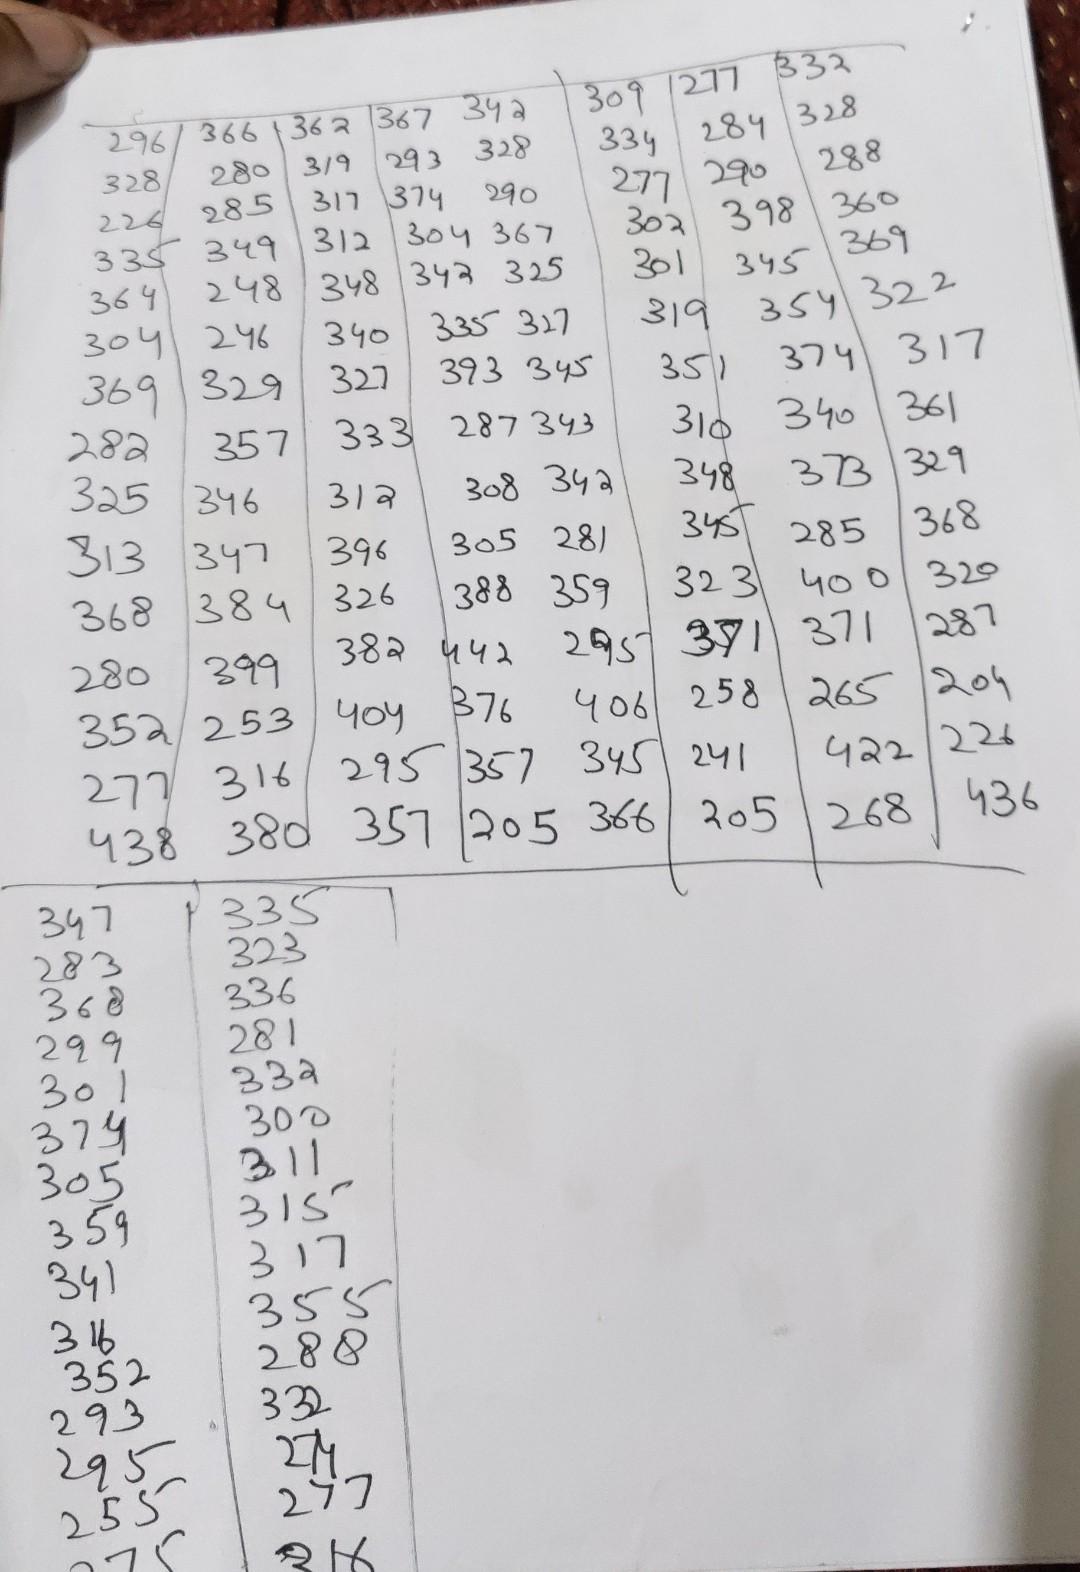 296 366 362 367 342 309 277 332
328 280 319 293 328 334 284 328
226 285 317 374 290 277 290 288
335 349 312 304 367 302 398 360
364 248 348 342 325 301 345 369
304 246 340 335 327 319 354 322
369 329 327 393 345 351 374 317
282 357 333 287 343 310 340 361
325 346 312 308 342 348 373 329
313 347 396 305 281 345 285 368
368 384 326 388 359 323 400 320
280 399 382 442 295 371 371 287
352 253 404 376 406 258 265 204
277 316 295 357 345 241 422 226
438 380 357 205 366 205 268 436
347 335
283 323
368 336
299 281
301 332
374 300
305 311
359 315
341 317
316 355
352 288
293 332
295 274
255 277
275